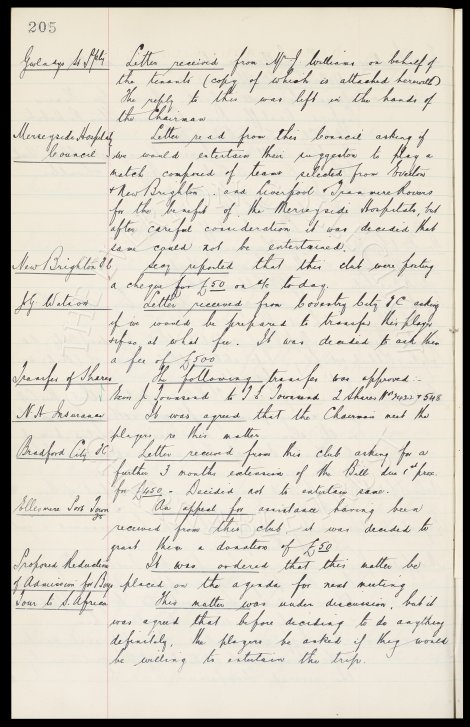 205
Gwladys St Ppty Letter received from Mr J Williams on behalf of
the tenants (copy of which is attached herewith)
The reply to this was left in the hands of
the Chairman
Merseyside Hospitals Letter read from this Council asking if
Council we would entertain their suggestion to play a
match composed of teams selected from Everton
& New Brighton and Liverpool & Tranmere Rovers
for the benefit of the Merseyside Hospitals, but
after careful consideration it was decided that
same could not be entertained.
New Brighton F C Secy reported that this club were posting
a cheque for £50 on a/c today.
J G Watson Letter received from Coventry City F C asking
if we would be prepared to transfer this player
& if so, at what fee. It was decided to ask them
a fee of £500
Transfer of Shares The following transfer was approved:-
J. Townsend to T E Townsend 2 Shares
N. H. Insurance It was agreed that the Chairman meet the
players re this matter
Bradford City F.C Letter received from this club asking for a
further 3 months extension of the Bill due 1st prox.
for £450 - Decided not to entertain same.
Ellesmere Port Town An appeal for assistance having been
received from this club it was decided to
grant them a donation of £50
Proposed Reduction It was ordered that this matter be
of Admission for Boys placed on the agenda for next meeting
Tour to S. Africa This matter was under discussion, but it
was agreed that before deciding to do anything
definitely, the players be asked if they would
be willing to entertain the trip.